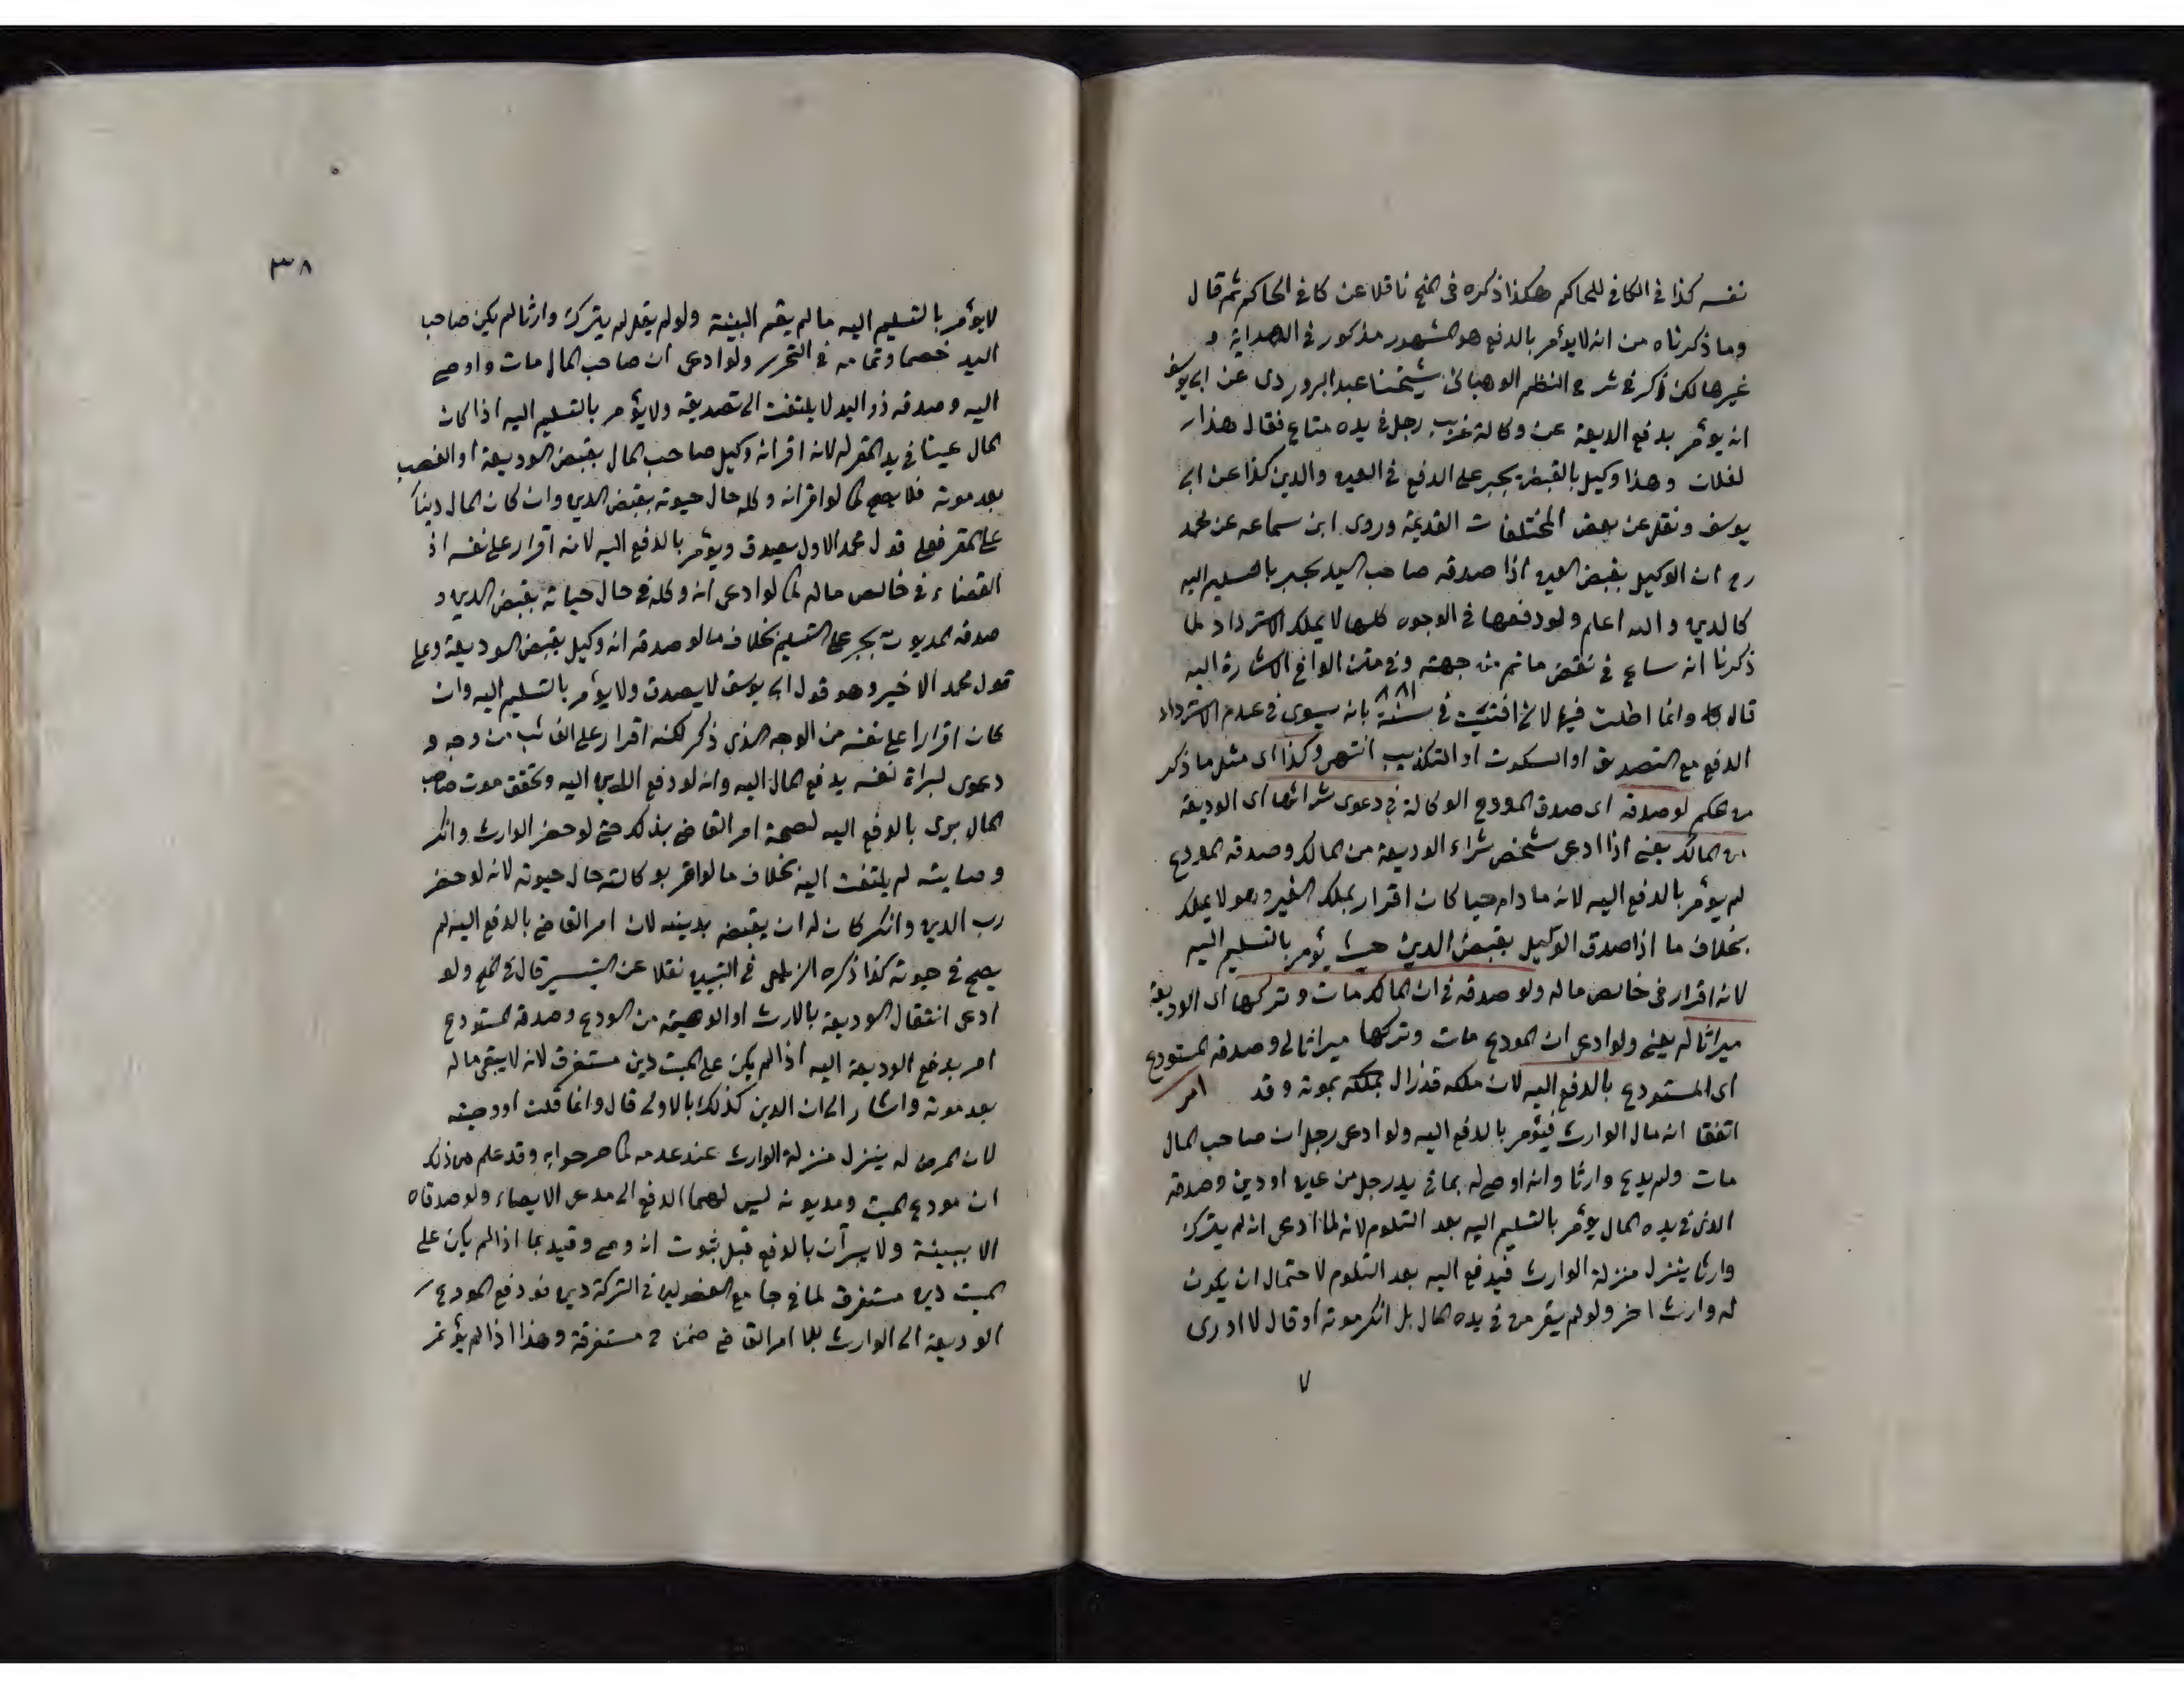 نفسه كذا في الكافي للحاكم هكذا ذكره في المنح ناقلا عن كافي الحاكم ثم قال
وما ذكرناه من انه لا يؤمر بالدفع هو المشهور مذكور في الهداية و
غيرها لكن ذكر في شرح النظم الوهباني شيخنا عبد البر وروى عن ابى يوسف
انه يؤمر بدفع الديعة عن وكالة غريب رجل في يده متاع فقال هذا
لفلان وهذا وكيل بالقبض يجبر على الدفع في العين والدين كذا عن ابى
يوسف ونقل عن بعض المختلفات القديمة وروى ابن سماعه عن محمد
رح ان الوكيل بقبض العين اذا صدقه صاحب اليد يجبر بالتسليم اليه
كالدين والله اعلم ولو دفعها في الوجوه كلها لا يملك الاسترداد لما
ذكرنا انه ساع في نقض ما تم من جهته وفي متن الوافي الاشارة اليه
قاله وانما اطلت فيها لاني افتيت في سنة ٨٨١ بانه يسوى في عدم الاسترداد
الدفع مع التصديق او السكوت او التكذيب انتهى وكذا اى مثل ما ذكر
من حكم لو صدقه اى صدق المودع الوكالة في دعوى شرائها اى الوديعة
من المالك يعني اذا ادعى شخص شراء الوديعة من المالك وصدقه المودع
لم يؤمر بالدفع اليه لانه مادام حيا كان اقرار بملك الغير وهو لا يملك
بخلاف ما اذا صدق الوكيل بقبض الدين حيث يؤمر بالتسليم اليه
لانه اقرار في خالص ماله ولو صدقه في ان المالك مات وتركها اى الوديعة
ميراثا له يعني ولو ادعى ان المودع مات وتركها ميراثا لى وصدقه المستودع
امر اى المستودع بالدفع اليه لان ملكه قد زال بملكه بموته وقد
اتفقا انه مال الوارث فيؤمر بالدفع اليه ولو ادعى رجل ان صاحب المال
مات ولم يدع وارثا وانه اوصى له بما في يد رجل من عين او دين وصدقه
الذى في يده المال يؤمر بالتسليم اليه بعد التلوم لانه لما ادعى انه لم يترك
وارثا ينزل منزلة الوارث فيدفع اليه بعد التلوم لاحتمال ان يكون
له وارث اخر ولو لم يقر من في يده المال بل انكر موته او قال لا ادرى
٧
٣٨
لا يؤمر بالتسليم اليه ما لم يقم البينة ولو لم يقل لم يترك وارثا لم يكن صاحب
اليد خصما وتمامه في التحرير ولو ادعى ان صاحب المال مات واوصى
اليه وصدقه ذو اليد لا يلتفت الى تصديقه ولا يؤمر بالتسليم اليه اذا كان
المال عينا في يد المقر له لانه اقر انه وكيل صاحب المال بقبض الوديعة او الغصب
بعد موته فلا يصح كما لو اقر انه وكله حال حيوته بقبض الدين وان كان المال دينا
على المقر فعلى قول محمد الاول يصدق ويؤمر بالدفع اليه لانه اقرار على نفسه اذ
القضاء في خالص ماله كما لو ادعى انه وكله في حال حياته بقبض الدين و
صدقه المديون يجبر على التسليم بخلاف ما لو صدقه انه وكيل بقبض الوديعة وعلى
قول محمد الاخير وهو قول ابى يوسف لا يصدق ولا يؤمر بالتسليم اليه وان
كان اقرارا على نفسه من الوجه الذى ذكر لكنه اقرار على الغائب من وجه و
دعوى لبراة نفسه بدفع المال اليه وانه لو دفع الدين اليه وتحقق موت صاحب
المال برى بالدفع اليه لصحة امر القاضى بذلك حتى لو حضر الوارث وانكر
وصايته لم يلتفت اليه بخلاف ما لو اقر بوكالته حال حيوته لانه لو حضر
رب الدين وانكر كان له ان يقبضه بدينه لان امر القاضى بالدفع اليه لم
يصح في حيوته كذا ذكره الزيلعى في التبيين نقلا عن التيسير قال في المنح ولو
ادعى انتقال الوديعة بالارث او الوصية من المودع وصدقه المستودع
امر بدفع الوديعة اليه اذا لم يكن على الميت دين مستغرق لانه لا يبقى ماله
بعد موته واشار الى ان الدين كذلك بالاولى قال وانما قلت او وصيته
لان الموصى له ينزل منزلة الوارث عند عدمه كما صرحوا به وقد علم من ذلك
ان مودع الميت ومديونه ليس لهما الدفع الى مدعى الايصاء ولو صدقاه
الا ببينة ولا يبرآن بالدفع قبل ثبوت انه وصى وقيد بما اذا لم يكن على
الميت دين مستغرق لما في جامع الفصولين في التركة دين فدفع المودع
الوديعة الى الوارث بلا امر القاضى ضمن لو مستغرقة وهذا اذا لم يؤتمن